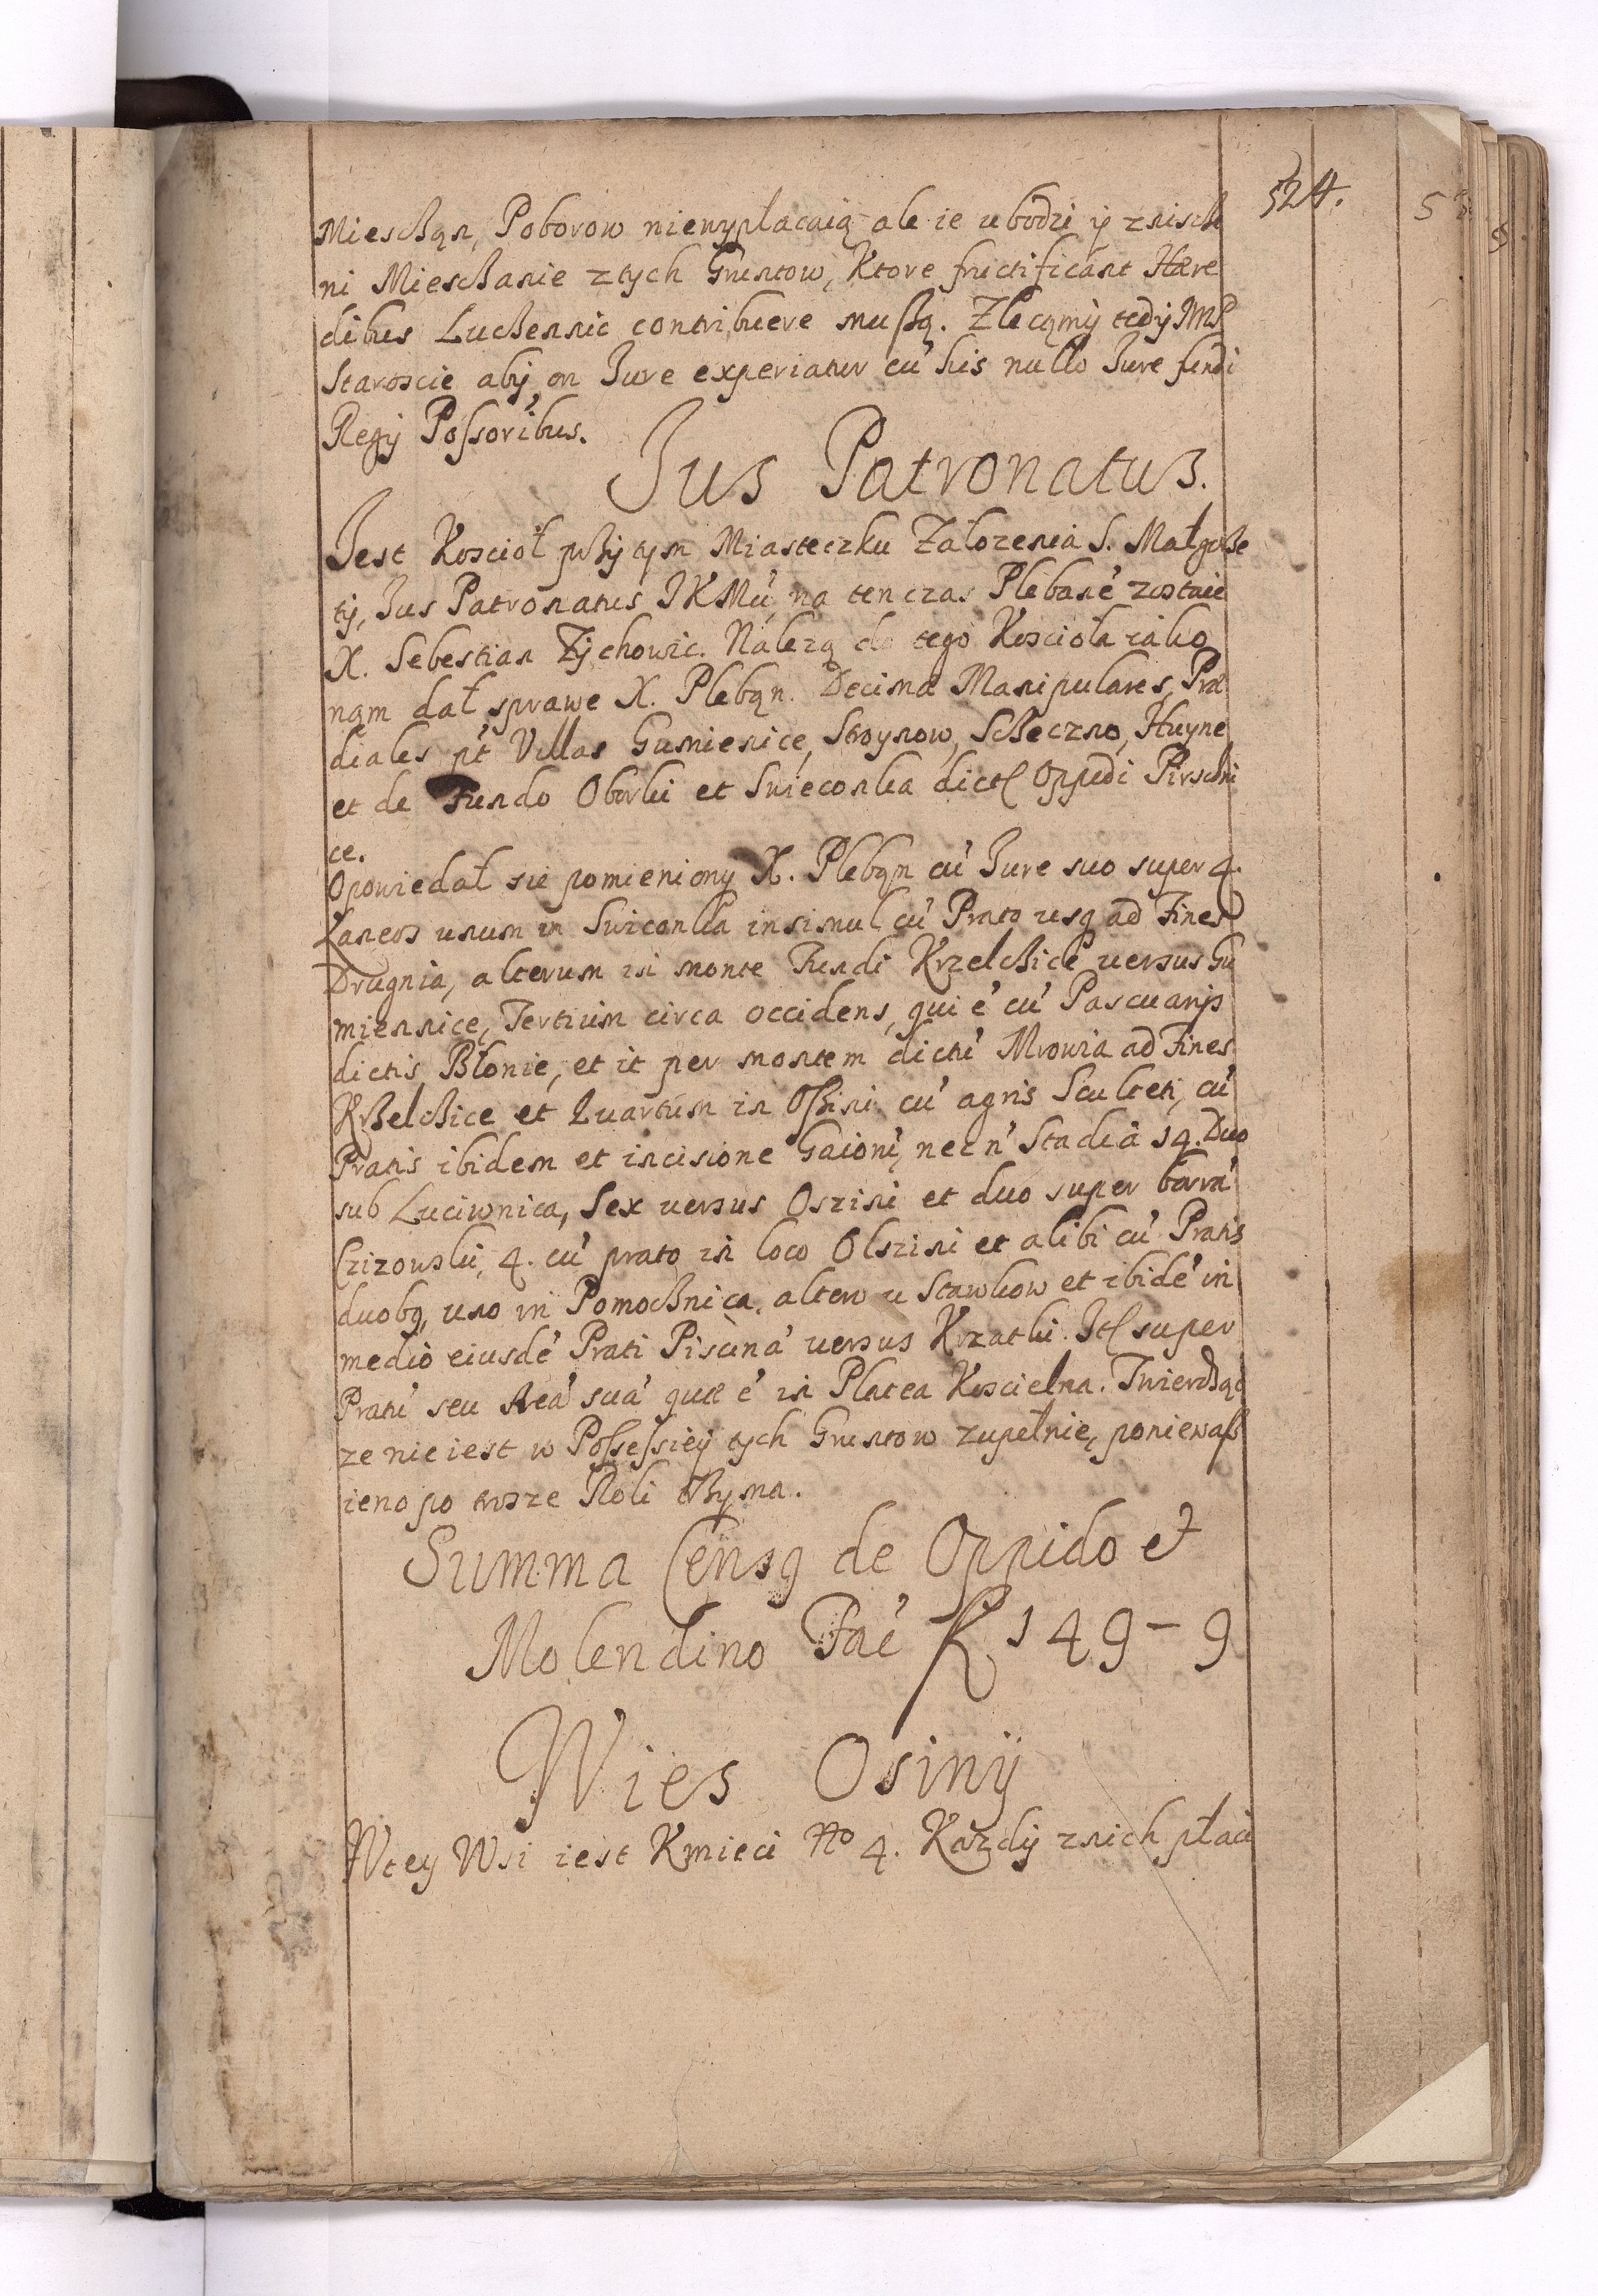 524.
Mieschan, Poborow niewypłacaią ale ie ubodzi ÿ znisch
ni Mieschanie ztych Gruntow, Ktore fructificant Hære
dibus Luchennic contribuere mußą. Zlecąmÿ tedÿ JMP
Staroscie abÿ on Jure experiatur cu' his nullo Jure fundi
Regÿ Poſsoribus.
Jus Patronatus.
Jest Koscioł pßÿ tÿm Miasteczku Załozenia S. Małgoße
tÿ, Jus Patronatus JKMu', na ten czas Plebane' zostaie
X. Sebestian Zÿchowic. Nalezą do tego Kościoła iako
nąm dał sprawe X. Plebąn. Decimæ Manipulares, Præ
diales pt Villas Gumienice, Stroynow, Scheczno, Huyne
et de Fundo Oborki et Swieconka dict Oppidi Pirschni
ce.
Opowiedał sie pomieniony X. Plebąn cu' Jure suo super 4.
Łaneos unum in Swiconka insimul cu' Prato usq ad Fines
Drugnia, alterum in monte Fundi Krzelchice versus Gu
miennice, Tertium circa occidens, qui e' cu' Pascuarijs
dictis Błonie, et it per montem dictu' Mrowia ad Fines
Kßelchice et Quartum in Oßini cu' agris Sculteti, cu'
Pratis ibidem et incisione Gaioni, nec n' Stadia 14. Duo
sub Luciwnica, Sex versus Oszini et duo super borra'
Czizowski, 4. cu' prato in loco Olszini et alibi cu' Pratis
duobq, uno in Pomochnica, altero u Stawkow et ibide' in
medio eiusde' Prati Piscina' versus Krzatki. It super
Pratu' seu Area' sua' quæ e' in Platea Koscielna. Twierdząc
ze nie iest w Poſseſsiey tÿch Gruntow zupełnie, poniewaß
ieno po trosze Roli tßyma.
Summa Censq de Oppido et
Molendino Fac' R 149 - 9
Wies Osinÿ
Wtey Wsi iest Kmieci No 4. Każdÿ znich płaci